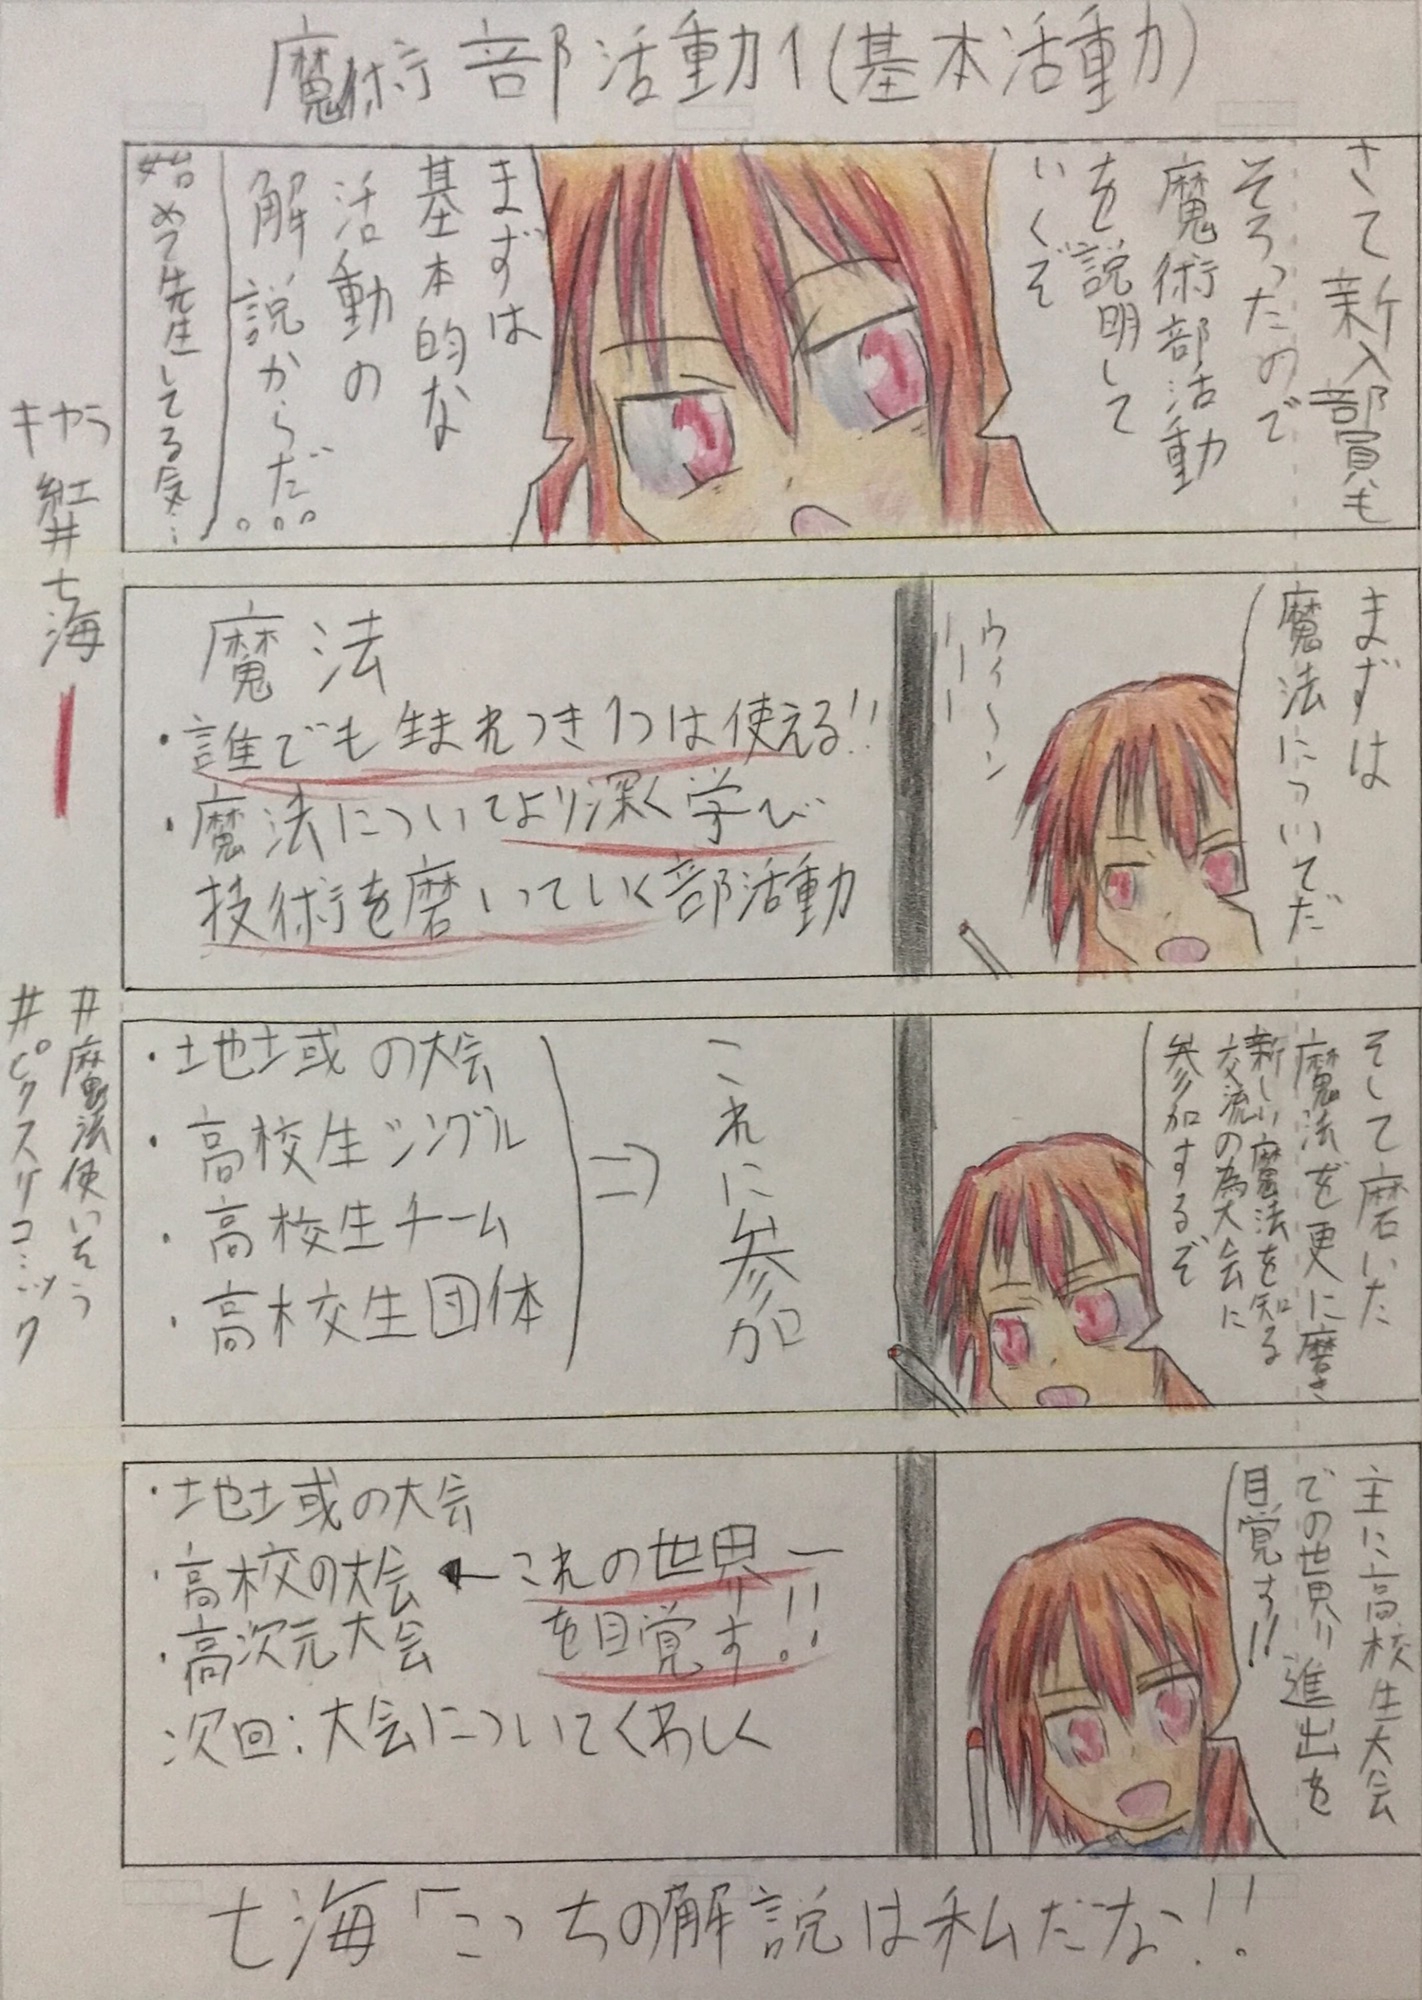 魔術部活動1(基本活動)
さて新入部員も
そろったので
魔術部活動
を説明して
いくぞ
まずは
基本的な
活動の
解説からだ…
始めて先生してる気…
まずは
魔法についてだ
ウィ〜ン
魔法
・誰でも生まれつき1つは使える!!
・魔法についてより深く学び
技術を磨いていく部活動
そして磨いた
魔法を更に磨き
新しい魔法を知る
交流の為大会に
参加するぞ
・地域の大会
・高校生シングル
・高校生チーム
・高校生団体
⇒
これに参加
主に高校生大会
での世界進出を
目覚す!!
・地域の大会
・高校の大会←これの世界一
を目覚す!!
・高次元大会
次回:大会についてくわしく
七海「こっちの解説は私だな!!
キャラ
紅井七海
#魔法使いそう
#ピクスリコミック